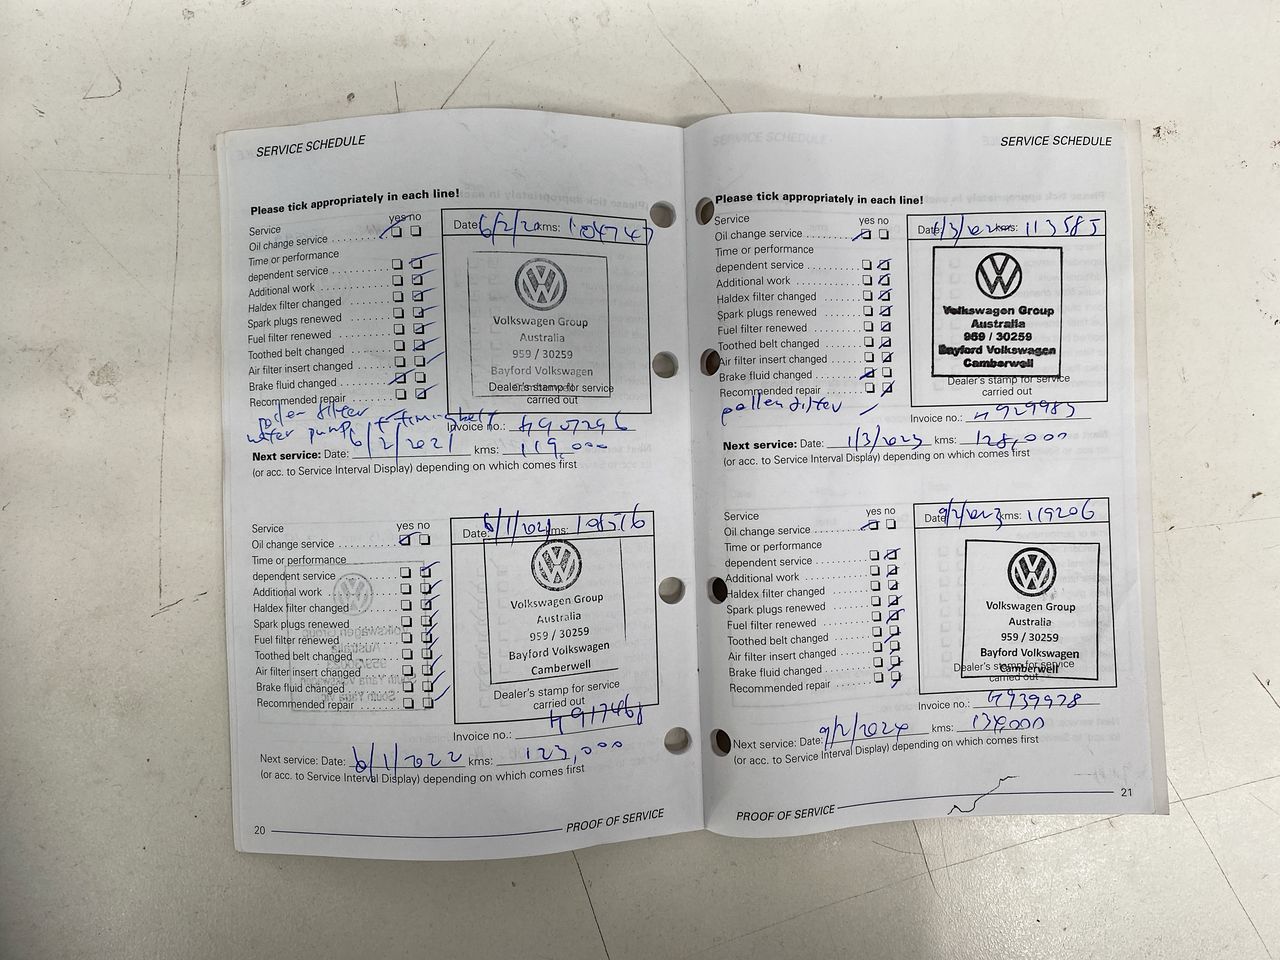 SERVICE SCHEDULE
Please tick appropriately in each line!
Service yes no
Oil change service
Time or performance
dependent service
Additional work
Haldex filter changed
Spark plugs renewed
Fuel filter renewed
Toothed belt changed
Air filter insert changed
Brake fluid changed
Recommended repair
pollen filter
water pump + timing belt
Date: 6/2/20 kms: 104747
Volkswagen Group
Australia
959 / 30259
Bayford Volkswagen
Dealer's stamp for service
carried out
Invoice no.:
Next service: Date: 6/2/2021 kms: 119,000
(or acc. to Service Interval Display) depending on which comes first
Service yes no
Oil change service
Time or performance
dependent service
Additional work
Haldex filter changed
Spark plugs renewed
Fuel filter renewed
Toothed belt changed
Air filter insert changed
Brake fluid changed
Recommended repair
Date: 6/1/2021 kms:
Volkswagen Group
Australia
959 / 30259
Bayford Volkswagen
Camberwell
Dealer's stamp for service
carried out
Invoice no.:
Next service: Date: 6/1/2022 kms: 123,000
(or acc. to Service Interval Display) depending on which comes first
20 PROOF OF SERVICE
SERVICE SCHEDULE
Please tick appropriately in each line!
Service yes no
Oil change service
Time or performance
dependent service
Additional work
Haldex filter changed
Spark plugs renewed
Fuel filter renewed
Toothed belt changed
Air filter insert changed
Brake fluid changed
Recommended repair
pollen filter
Date: kms: 113585
Volkswagen Group
Australia
959 / 30259
Bayford Volkswagen
Camberwell
Dealer's stamp for service
carried out
Invoice no.: 4929983
Next service: Date: 1/3/2023 kms: 128,000
(or acc. to Service Interval Display) depending on which comes first
Service yes no
Oil change service
Time or performance
dependent service
Additional work
Haldex filter changed
Spark plugs renewed
Fuel filter renewed
Toothed belt changed
Air filter insert changed
Brake fluid changed
Recommended repair
Date: 9/2/2023 kms: 119206
Volkswagen Group
Australia
959 / 30259
Bayford Volkswagen
Camberwell
Dealer's stamp for service
carried out
Invoice no.: 4939978
Next service: Date: 9/2/2024 kms: 134,000
(or acc. to Service Interval Display) depending on which comes first
PROOF OF SERVICE 21